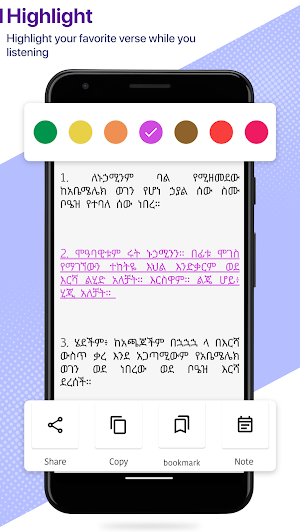 Highlight
Highlight your favorite verse while you
listening
1. ለኑኃሚንም ባል የሚዘመደው
ከአቤሜሌክ ወገን የሆነ ኃያል ሰው ስሙ
ቦዔዝ የተባለ ሰው ነበረ።
2. ሞዓባዊቱም ሩት ኑኃሚንን። በፊቱ ሞገስ
የማገኘውን ተከትዬ እህል እንድቃርም ወደ
እርሻ ልሂድ አለቻት። እርስዋም። ልጄ ሆይ፥
ሂጂ አለቻት።
3. ሄደችም፥ ከአጫጆችም በኋላ በእርሻ
ውስጥ ቃረ እንደ አጋጣሚውም የአቤሜሌክ
ወገን ወደ ነበረው ወደ ቦዔዝ እርሻ
ደረሰች።
Share
Copy
bookmark
Note